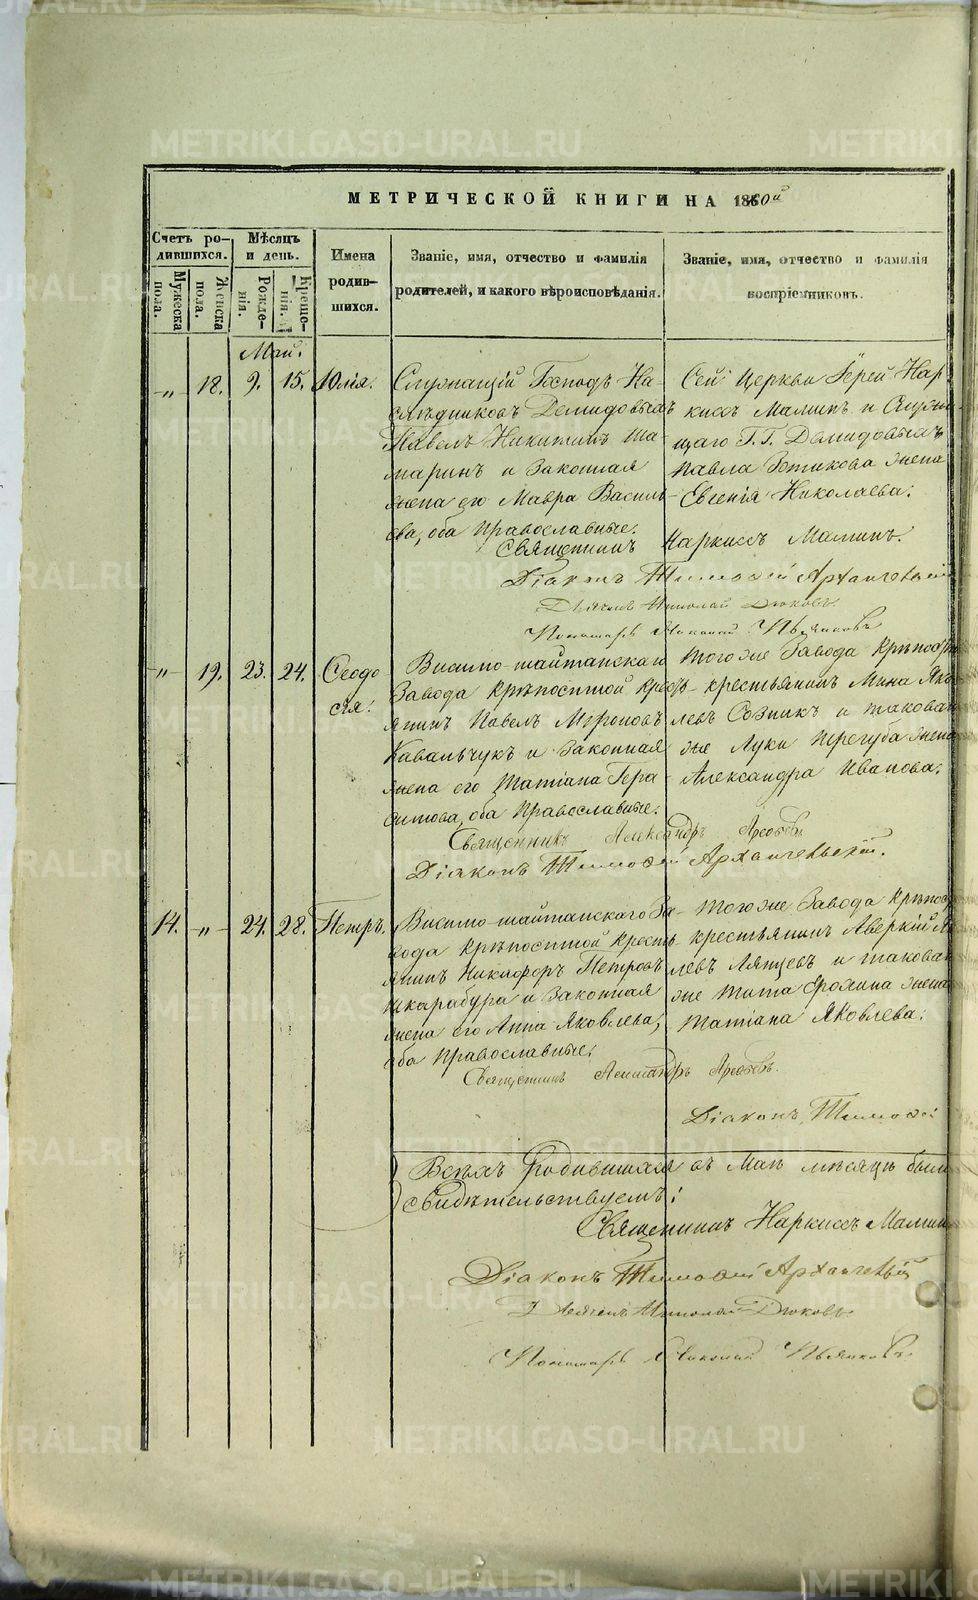 МЕТРИЧЕСКОЙ КНИГИ НА 1860й
Счетъ ро-
дившихся.
Мужеска
пола.
Женска
пола.
Мѣсяцъ
и день.
Рожде-
нія.
Креще-
нія.
Имена
родив-
шихся.
Званіе, имя, отчество и фамилія
родителей, и какого вѣроисповѣданія.
Званіе, имя, отчество и фамилія
воспріемниковъ.
Май.
„ 18. 9. 15. Юлія.
Служащій Господъ На-
слѣдниковъ Демидовыхъ
Павелъ Никитинъ Ша-
маринъ и Законная
жена его Мавра Василь-
ева, оба Православные.
Сей Церкви Іерей Нар
киссъ Маминъ и Служа-
щаго Г.Г. Демидовыхъ
Павла Зотикова жена
Евгенія Николаева.
Священникъ Наркиссъ Маминъ.
Діаконъ Тимофей Архангельскій
Дьячекъ Николай Дюковъ.
Пономарь Пьянковъ
„ 19. 23. 24. Ѳеодо
сія.
Висимо-шайтанскаго
Завода Крѣпостной Крест-
янинъ Павелъ Мѵроновъ
Кавальчукъ и Законная
жена его Татіана Гера-
симова, оба Православные.
Тогоже Завода Крѣпост
крестьянинъ Мина Як
левъ Созникъ и таковаго
же Луки Трегуба жена
Александра Иванова.
Священникъ Александръ
Діаконъ Тимофей Архангельскій.
14. „ 24. 28. Петръ.
Висимо-шайтанскаго За-
вода Крѣпостной Кресть
янинъ Никифоръ Петровъ
Шкарабура и Законная
жена его Анна Яковлева,
оба Православные.
Тогоже Завода Крѣпост
крестьянинъ Аверкій
левъ Ляпцевъ и таковаго
же Тита Ерохина жена
Татіана Яковлева.
Священникъ Александръ
Діаконъ Тимофей
Всѣхъ родившихся въ Маѣ мѣсяцѣ были
свидѣтельствуемъ:
Священникъ Наркиссъ Маминъ
Діаконъ Тимофей Архангельскій
Дьячекъ Николай Дюковъ.
Пономарь Пьянковъ.
METRIKI.GASO-URAL.RU